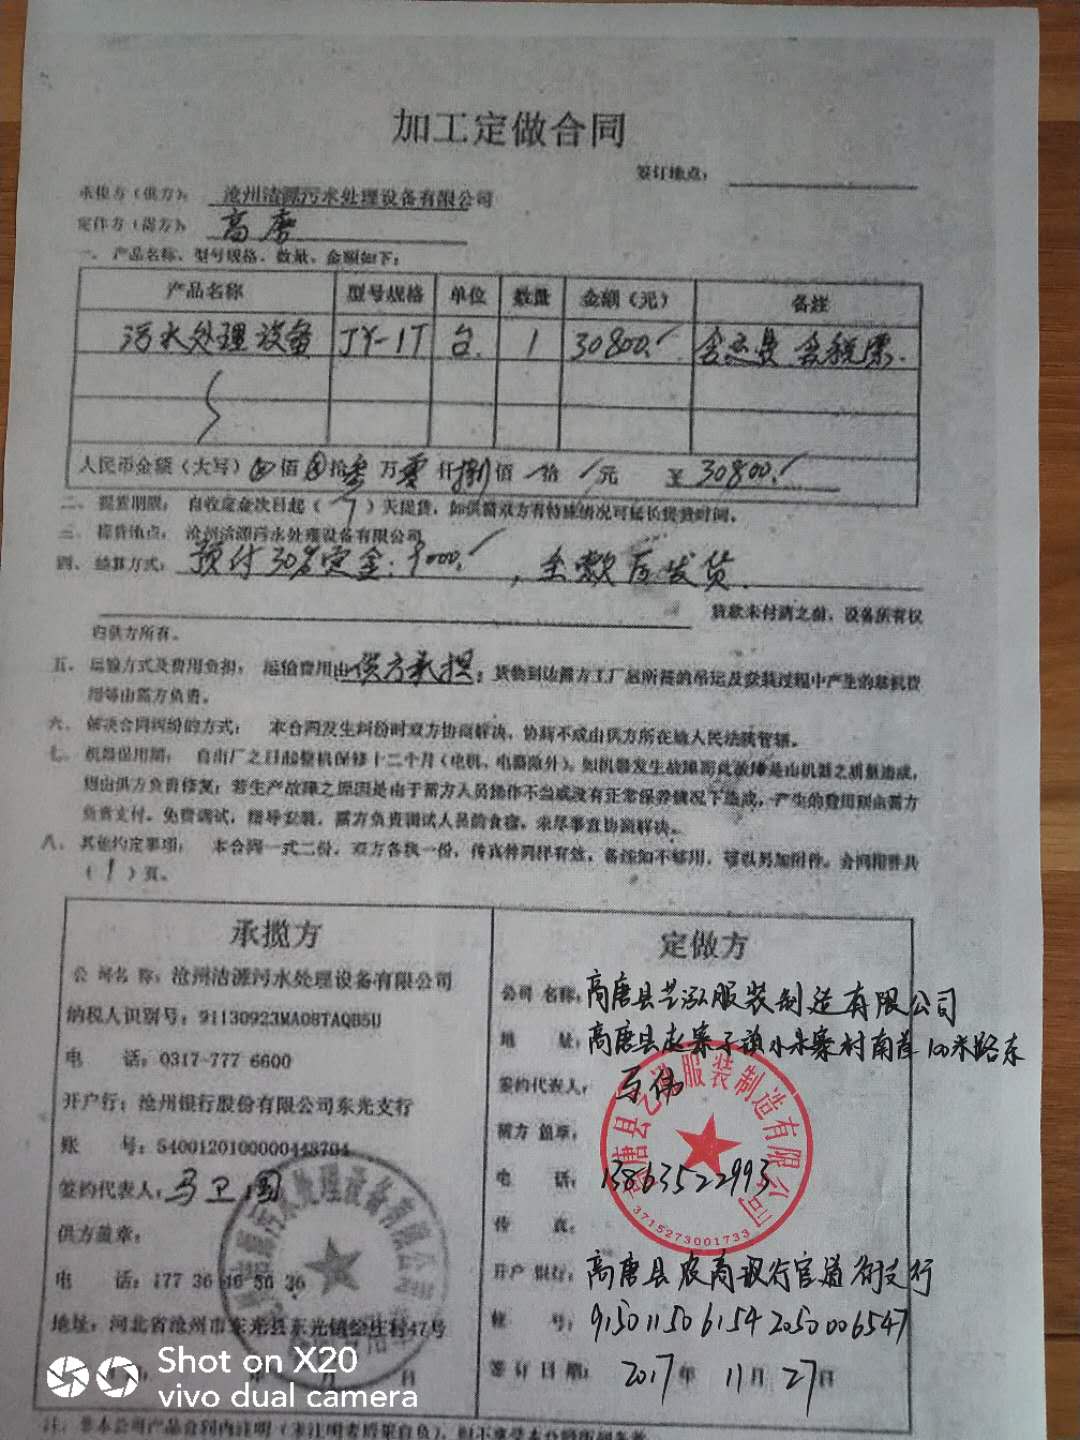 加工定做合同
签订地点：
承揽方（供方）： 沧州洁源污水处理设备有限公司
定作方（需方）： 高唐
一、产品名称、型号规格、数量、金额如下：
产品名称 型号规格 单位 数量 金额（元） 备注
污水处理设备 JY-1T 台. 1 30800. 含运费 含税票.
人民币金额（大写） 佰 拾叁万零仟捌佰 拾 元 ¥30800.
二、提货期限： 自收定金次日起（7）天提货，如供需双方有特殊情况可延长提货时间。
三、提货地点： 沧州洁源污水处理设备有限公司
四、结算方式： 预付30%定金：9000. ，全款后发货.
货款未付清之前，设备所有权
归供方所有。
五、运输方式及费用负担： 运输费用由供方承担；货物到达需方工厂后所需的吊运及安装过程中产生的费
用等由需方负责。
六、解决合同纠纷的方式： 本合同发生纠纷时双方协商解决，协商不成由供方所在地人民法院管辖。
七、机器保用期： 自出厂之日起整机保修十二个月（电机、电器除外）。如机器发生故障而此故障是由机器之质量造成，
则由供方负责修复；若生产故障之原因是由于需方人员操作不当或没有正常保养情况下造成，产生的费用则由需方
负责支付。免费调试，指导安装，需方负责调试人员的食宿，未尽事宜协商解决。
八、其他约定事项： 本合同一式二份，双方各执一份，传真件同样有效，备注如不够用，可以另加附件。合同附件共
（1）页。
承揽方
公司名称：沧州洁源污水处理设备有限公司
纳税人识别号：91130923MA08TAQB5U
电 话：0317-777 6600
开户行：沧州银行股份有限公司东光支行
账 号：5400120100000448704
签约代表人：马卫国
供方盖章：
电 话：177 36 16 56 36
地址：河北省沧州市东光县东光镇 庄村47号
月 日
定做方
公司名称：高唐县艺泓服装制造有限公司
地 址：高唐县赵寨子镇小朱寨村南首100米路东
签约代表人：
需方盖章：
电 话：13863522993
传 真：
开户银行：高唐县农商银行官道街支行
帐 号：9150115061542050006547
签订日期：2017年11月27日
高唐县艺泓服装制造有限公司
3715273001733
Shot on X20
vivo dual camera